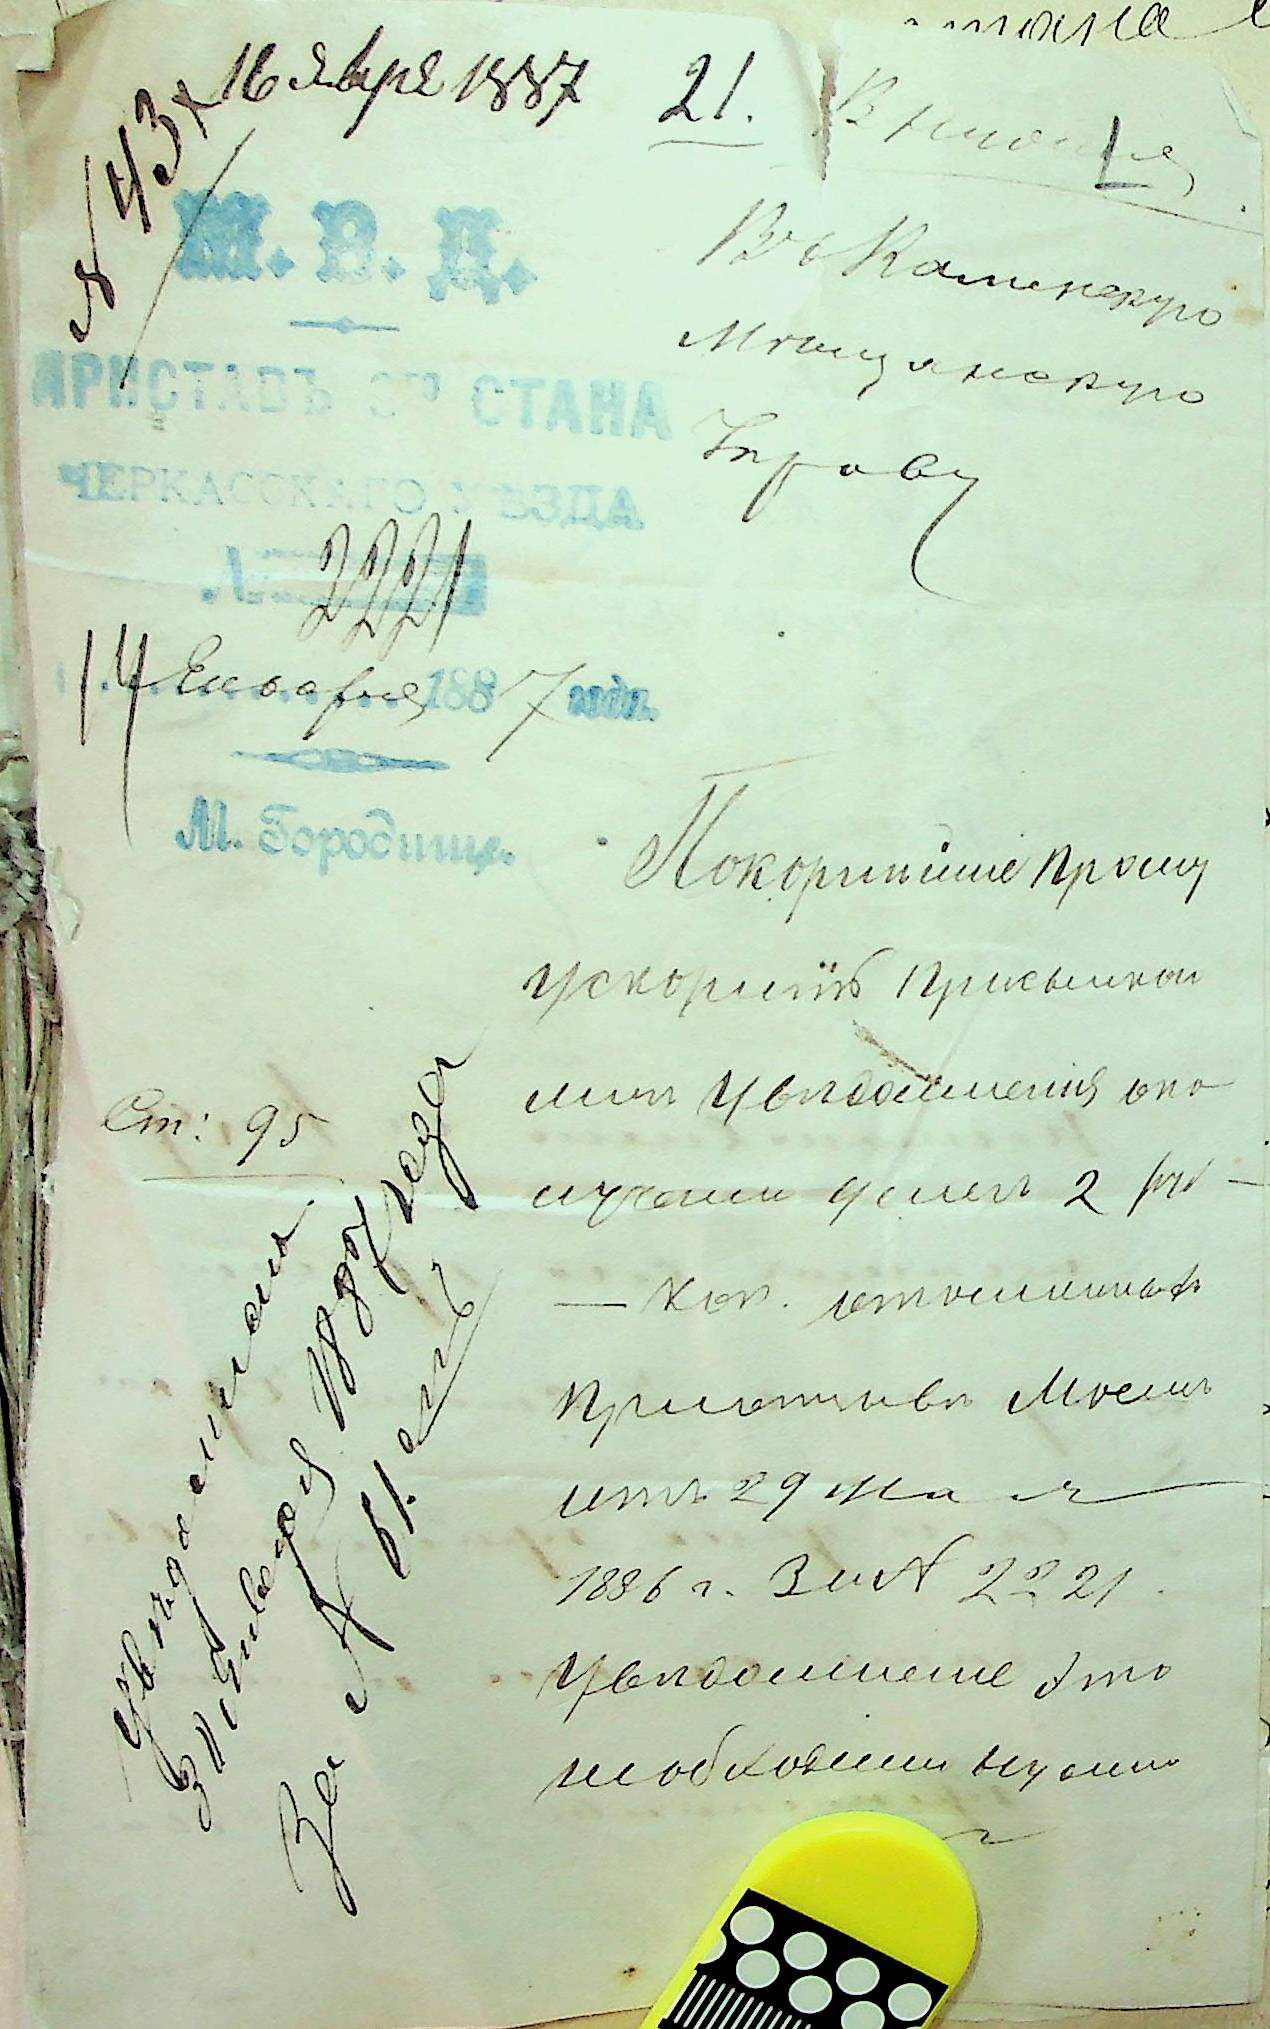 16 Янвре 1887
№ 43
21.
М. В. Д.
ПРИСТАВЪ 3го СТАНА
ЧЕРКАССКАГО УѢЗДА
№ 2221
14 Енваря 1887 года.
М. Городище.
Въ Каменскую
Мѣщанскую
Управу
Покорнѣйше прошу
ускорить присылкою
мнѣ увѣдомленія опо
лучении денегъ 2 руб
— коп. отосланныхъ
при отзывѣ моемъ
отъ 29 мая
1886 г. За № 2221
Увѣдомление это
необходимо нужно
Ст: 95
Увѣдомилъ
3 января 1887 года
За № 61.